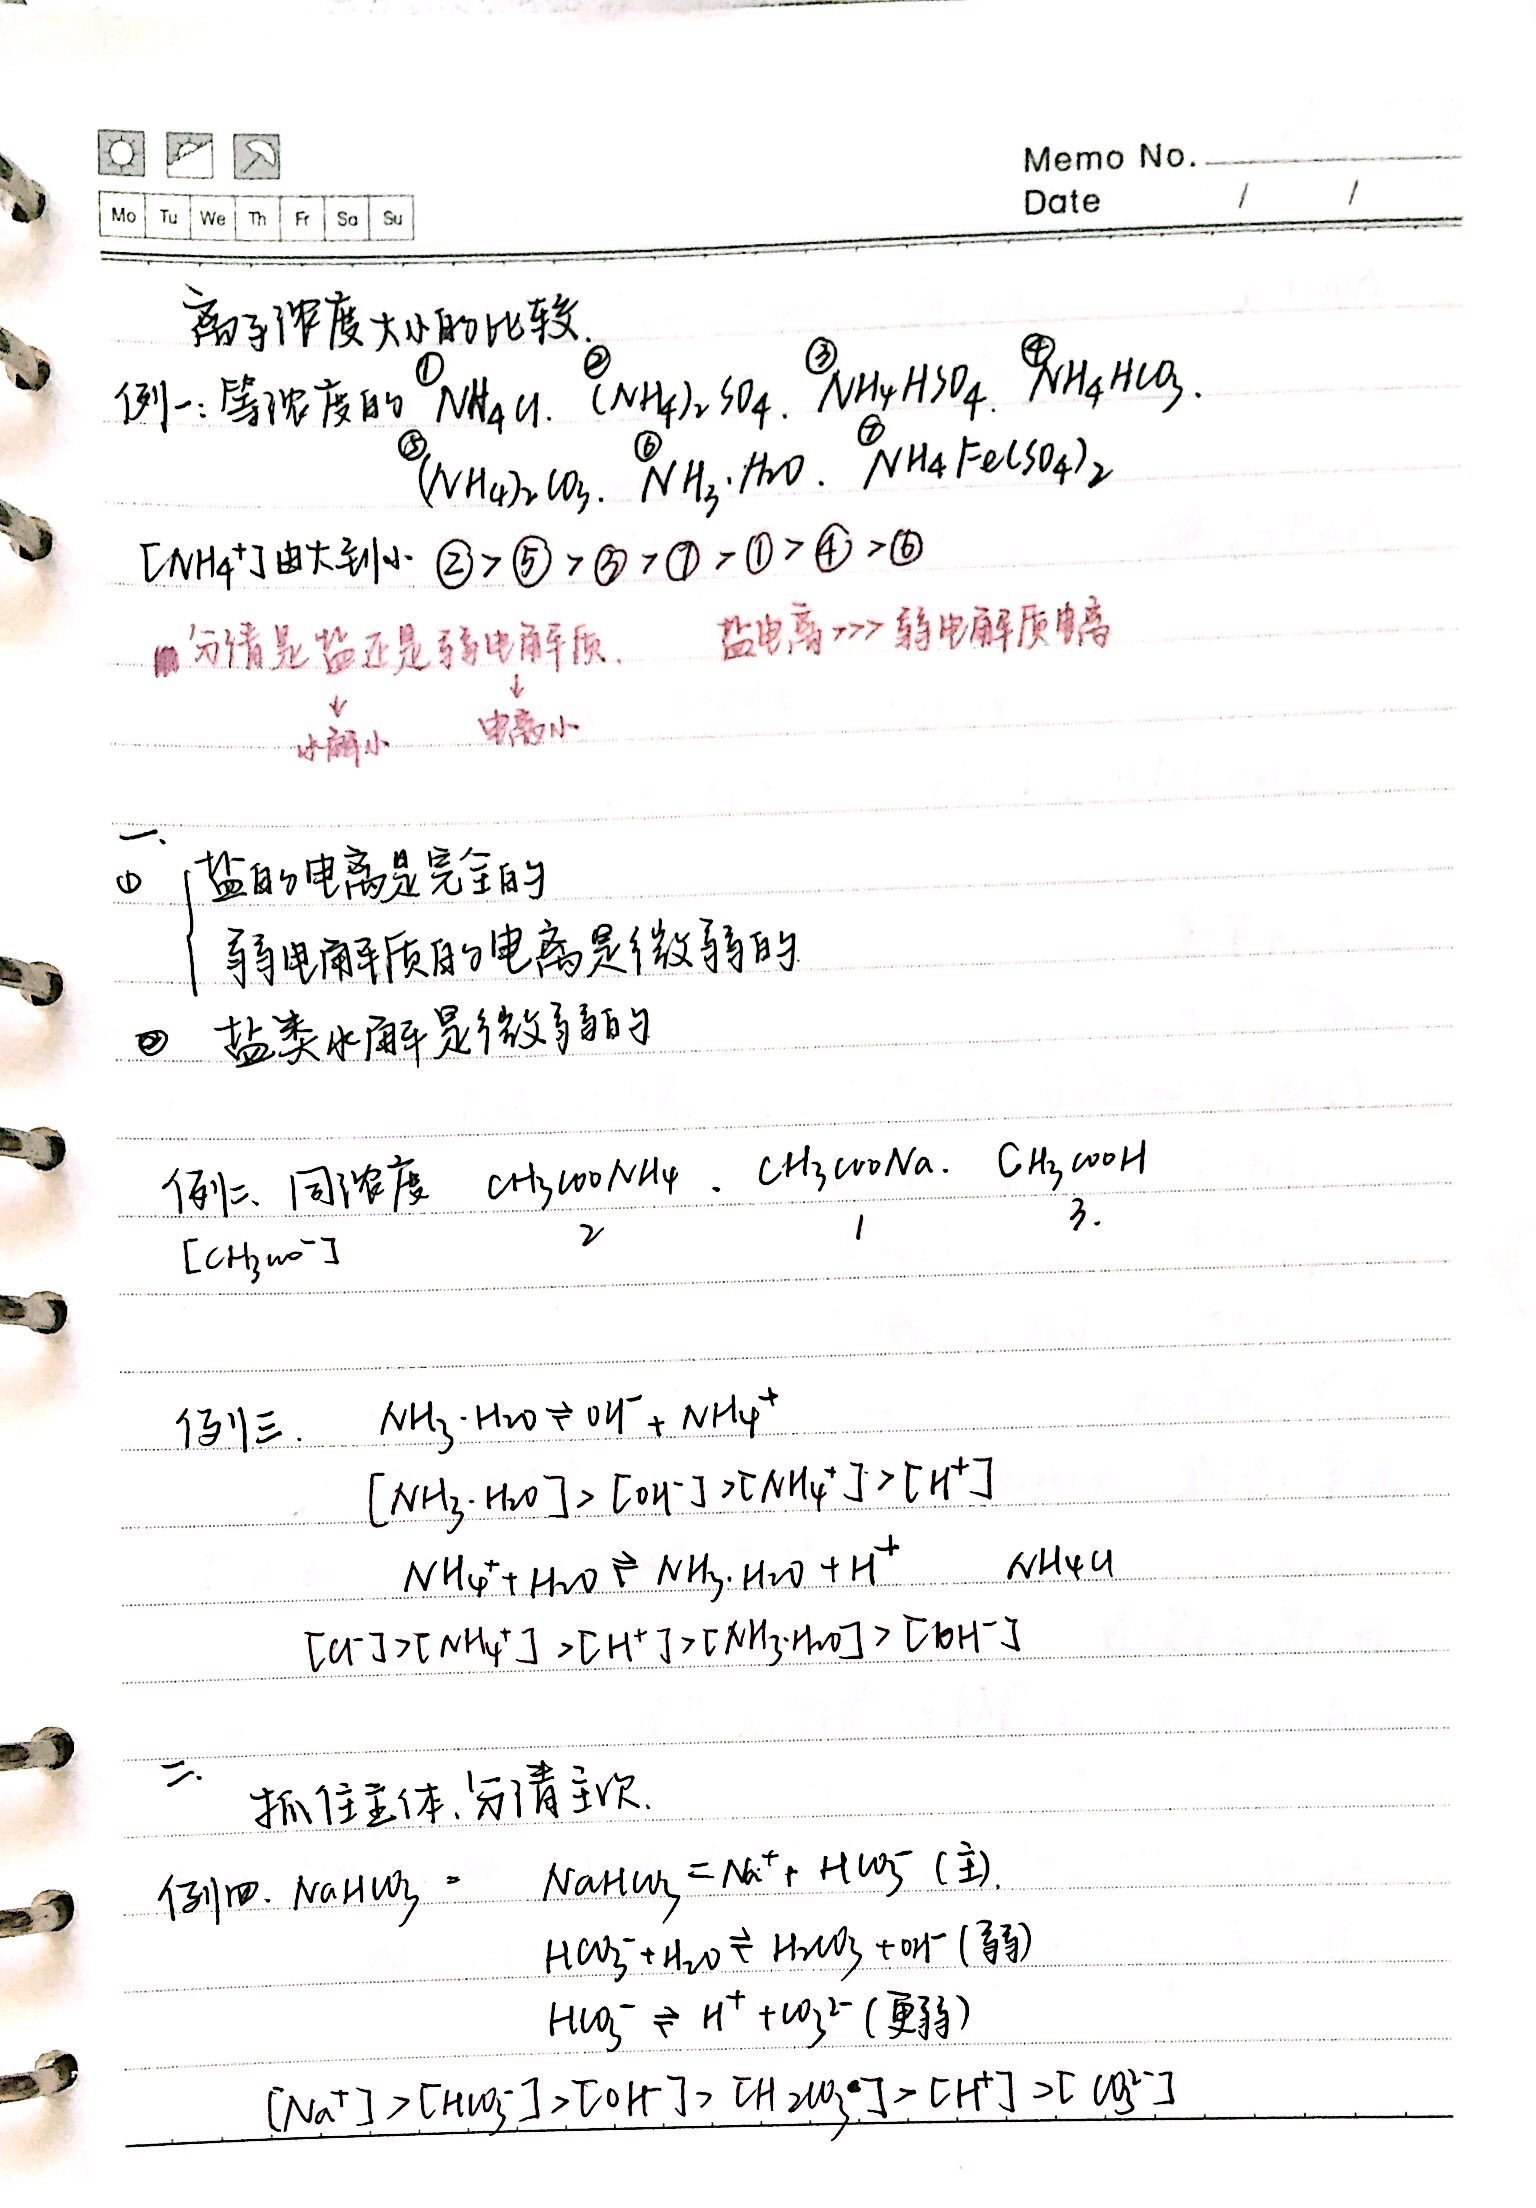 Memo No.
Date / /
Mo Tu We Th Fr Sa Su
离子浓度大小的比较.
例一:等浓度的 ①NH4Cl. ②(NH4)2SO4. ③NH4HSO4. ④NH4HCO3.
⑤(NH4)2CO3. ⑥NH3·H2O. ⑦NH4Fe(SO4)2
[NH4+]由大到小 ②>⑤>③>⑦>①>④>⑥
分清是盐还是弱电解质. 盐电离>>>弱电解质电离
↓ ↓
水解小 电离小
一.
① { 盐的电离是完全的
弱电解质的电离是微弱的
② 盐类水解是微弱的
例二、同浓度 CH3COONH4. CH3COONa. CH3COOH
[CH3COO-] 2 1 3.
例三. NH3·H2O⇌OH-+NH4+
[NH3·H2O]>[OH-]>[NH4+]>[H+]
NH4++H2O⇌NH3·H2O+H+ NH4Cl
[Cl-]>[NH4+]>[H+]>[NH3·H2O]>[OH-]
二.
抓住主体、分清主次.
例四. NaHCO3 = NaHCO3=Na++HCO3- (主).
HCO3-+H2O⇌H2CO3+OH- (弱)
HCO3-⇌H++CO32- (更弱)
[Na+]>[HCO3-]>[OH-]>[H2CO3]>[H+]>[CO32-]